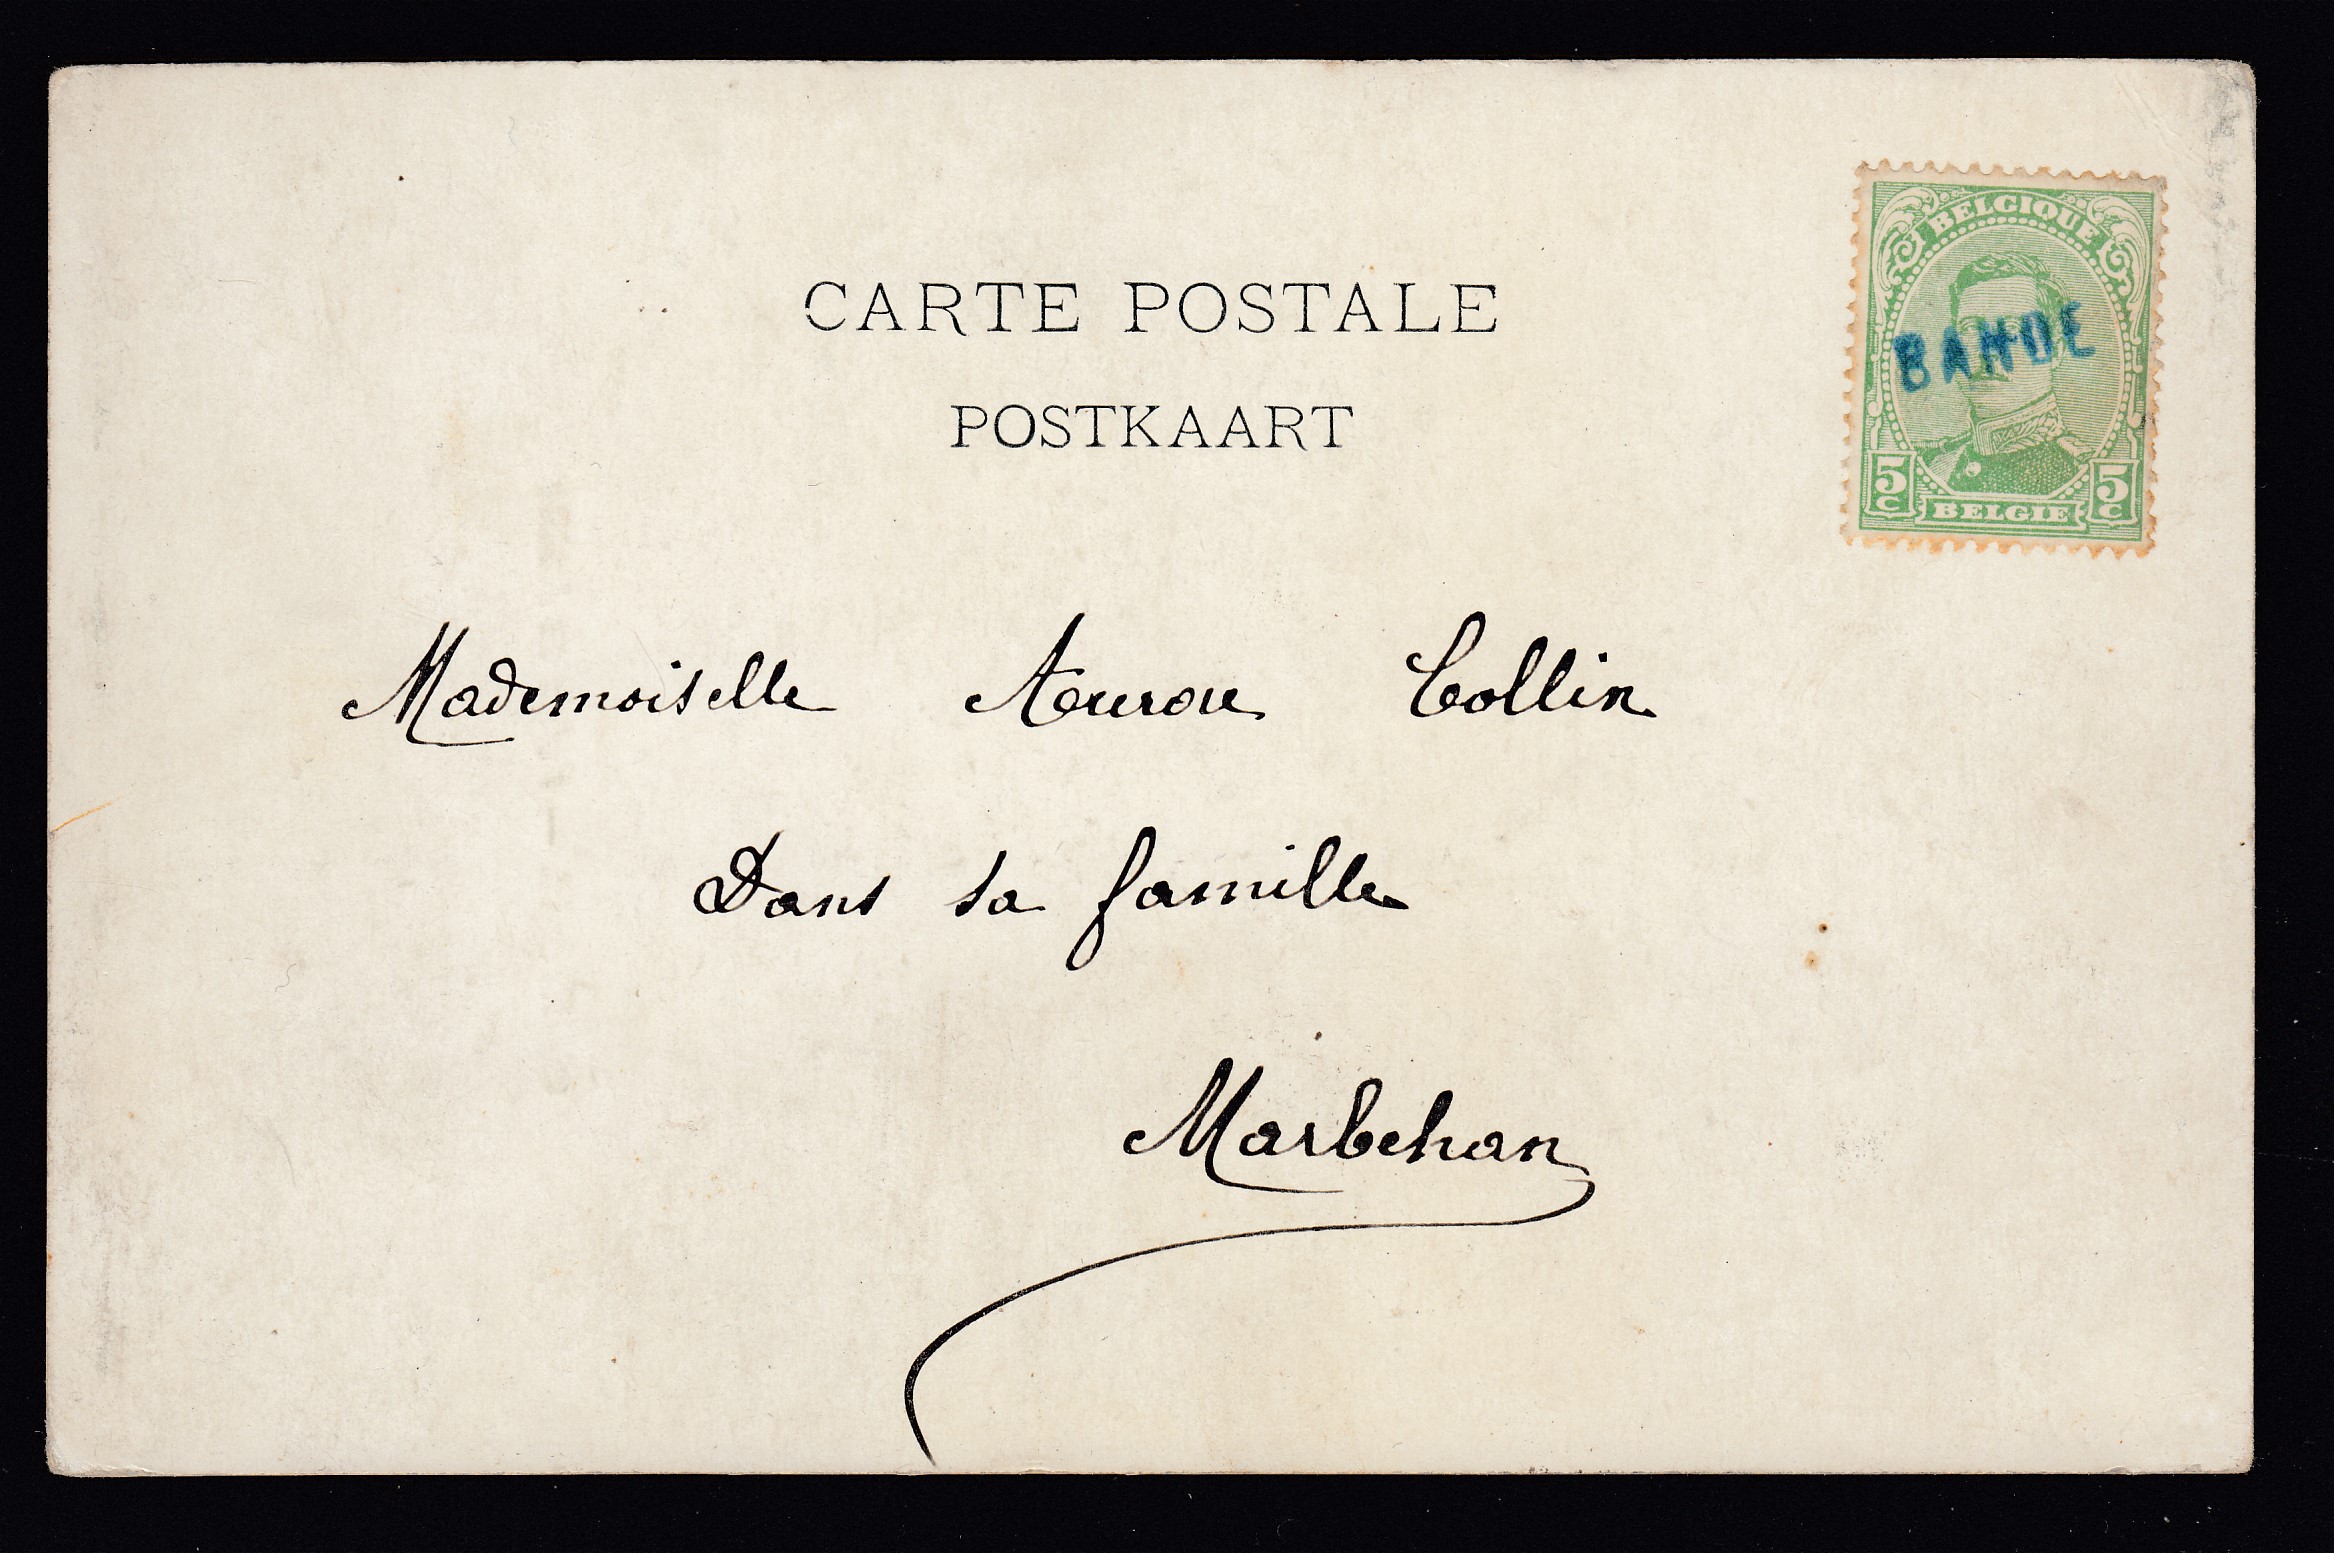 CARTE POSTALE
POSTKAART
BELGIQUE
BANDE
5 C
5 C
BELGIE
Mademoiselle Collin
Dans sa famille
Marbehan